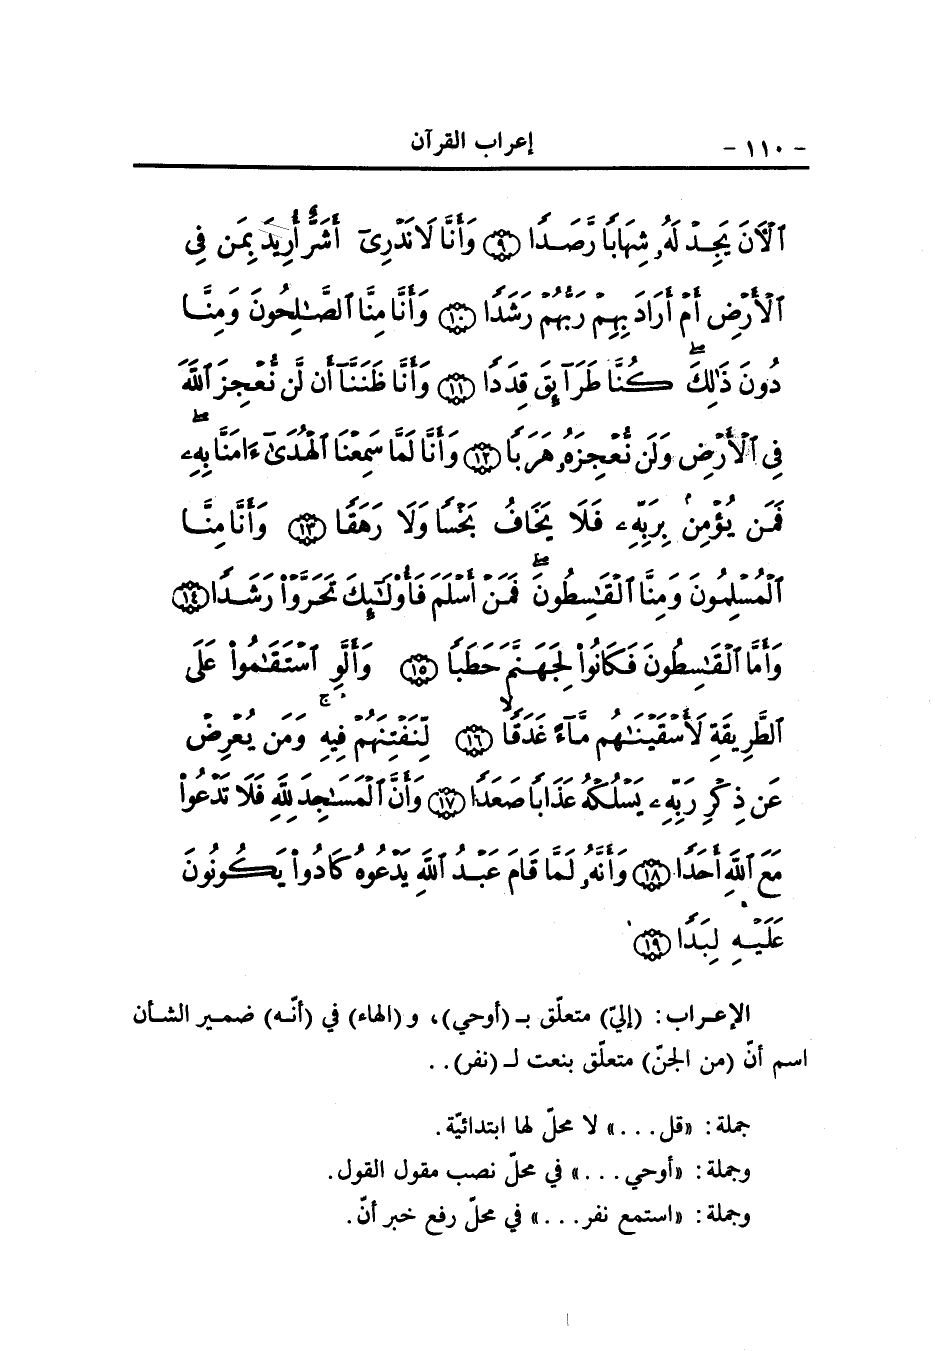 - ١١٠ - إعراب القرآن
ٱلْآنَ يَجِدْ لَهُۥ شِهَابًا رَّصَدًا ﴿٩﴾ وَأَنَّا لَا نَدْرِىٓ أَشَرٌّ أُرِيدَ بِمَن فِى
ٱلْأَرْضِ أَمْ أَرَادَ بِهِمْ رَبُّهُمْ رَشَدًا ﴿١٠﴾ وَأَنَّا مِنَّا ٱلصَّـٰلِحُونَ وَمِنَّا
دُونَ ذَٰلِكَ ۖ كُنَّا طَرَآئِقَ قِدَدًا ﴿١١﴾ وَأَنَّا ظَنَنَّآ أَن لَّن نُّعْجِزَ ٱللَّهَ
فِى ٱلْأَرْضِ وَلَن نُّعْجِزَهُۥ هَرَبًا ﴿١٢﴾ وَأَنَّا لَمَّا سَمِعْنَا ٱلْهُدَىٰٓ ءَامَنَّا بِهِۦ ۖ
فَمَن يُؤْمِنۢ بِرَبِّهِۦ فَلَا يَخَافُ بَخْسًا وَلَا رَهَقًا ﴿١٣﴾ وَأَنَّا مِنَّا
ٱلْمُسْلِمُونَ وَمِنَّا ٱلْقَـٰسِطُونَ ۖ فَمَنْ أَسْلَمَ فَأُو۟لَـٰٓئِكَ تَحَرَّوْا۟ رَشَدًا ﴿١٤﴾
وَأَمَّا ٱلْقَـٰسِطُونَ فَكَانُوا۟ لِجَهَنَّمَ حَطَبًا ﴿١٥﴾ وَأَلَّوِ ٱسْتَقَـٰمُوا۟ عَلَى
ٱلطَّرِيقَةِ لَأَسْقَيْنَـٰهُم مَّآءً غَدَقًا ﴿١٦﴾ لِّنَفْتِنَهُمْ فِيهِ ۚ وَمَن يُعْرِضْ
عَن ذِكْرِ رَبِّهِۦ يَسْلُكْهُ عَذَابًا صَعَدًا ﴿١٧﴾ وَأَنَّ ٱلْمَسَـٰجِدَ لِلَّهِ فَلَا تَدْعُوا۟
مَعَ ٱللَّهِ أَحَدًا ﴿١٨﴾ وَأَنَّهُۥ لَمَّا قَامَ عَبْدُ ٱللَّهِ يَدْعُوهُ كَادُوا۟ يَكُونُونَ
عَلَيْهِ لِبَدًا ﴿١٩﴾
الإعراب: (إليّ) متعلّق بـ (أوحي)، و(الهاء) في (أنّه) ضمير الشأن
اسم أنّ (من الجنّ) متعلّق بنعت لـ (نفر)..
جملة: «قل...» لا محلّ لها ابتدائيّة.
وجملة: «أوحي...» في محلّ نصب مقول القول.
وجملة: «استمع نفر...» في محلّ رفع خبر أنّ.